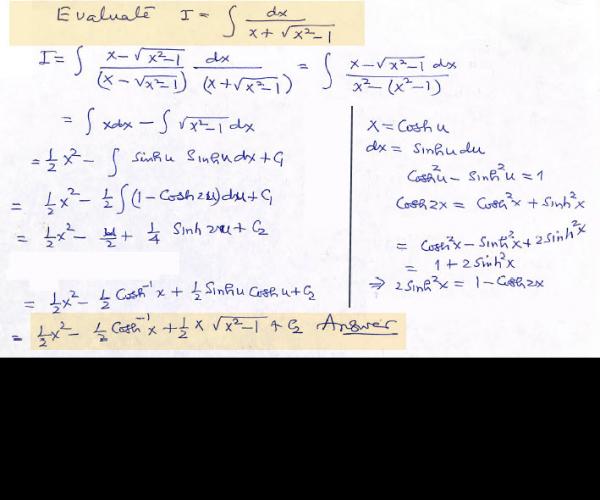 Evaluate I = ∫ dx / (x + √(x²-1))
I = ∫ (x - √(x²-1)) / (x - √(x²-1)) dx / (x + √(x²-1)) = ∫ (x - √(x²-1) dx) / (x² - (x²-1))
= ∫ x dx - ∫ √(x²-1) dx
= ½x² - ∫ Sinhu Sinhu dx + C₁
= ½x² - ½ ∫ (1 - Cosh2u) du + C₁
= ½x² - u/2 + ¼ Sinh 2u + C₂
= ½x² - ½ Cosh⁻¹x + ½ Sinhu Coshu + C₂
= ½x² - ½ Cosh⁻¹x + ½ x √(x²-1) + C₂ Answer
x = Coshu
dx = Sinhu du
Cosh²u - Sinh²u = 1
Cosh2x = Cosh²x + Sinh²x
= Cosh²x - Sinh²x + 2Sinh²x
= 1 + 2Sinh²x
⇒ 2Sinh²x = 1 - Cosh2x